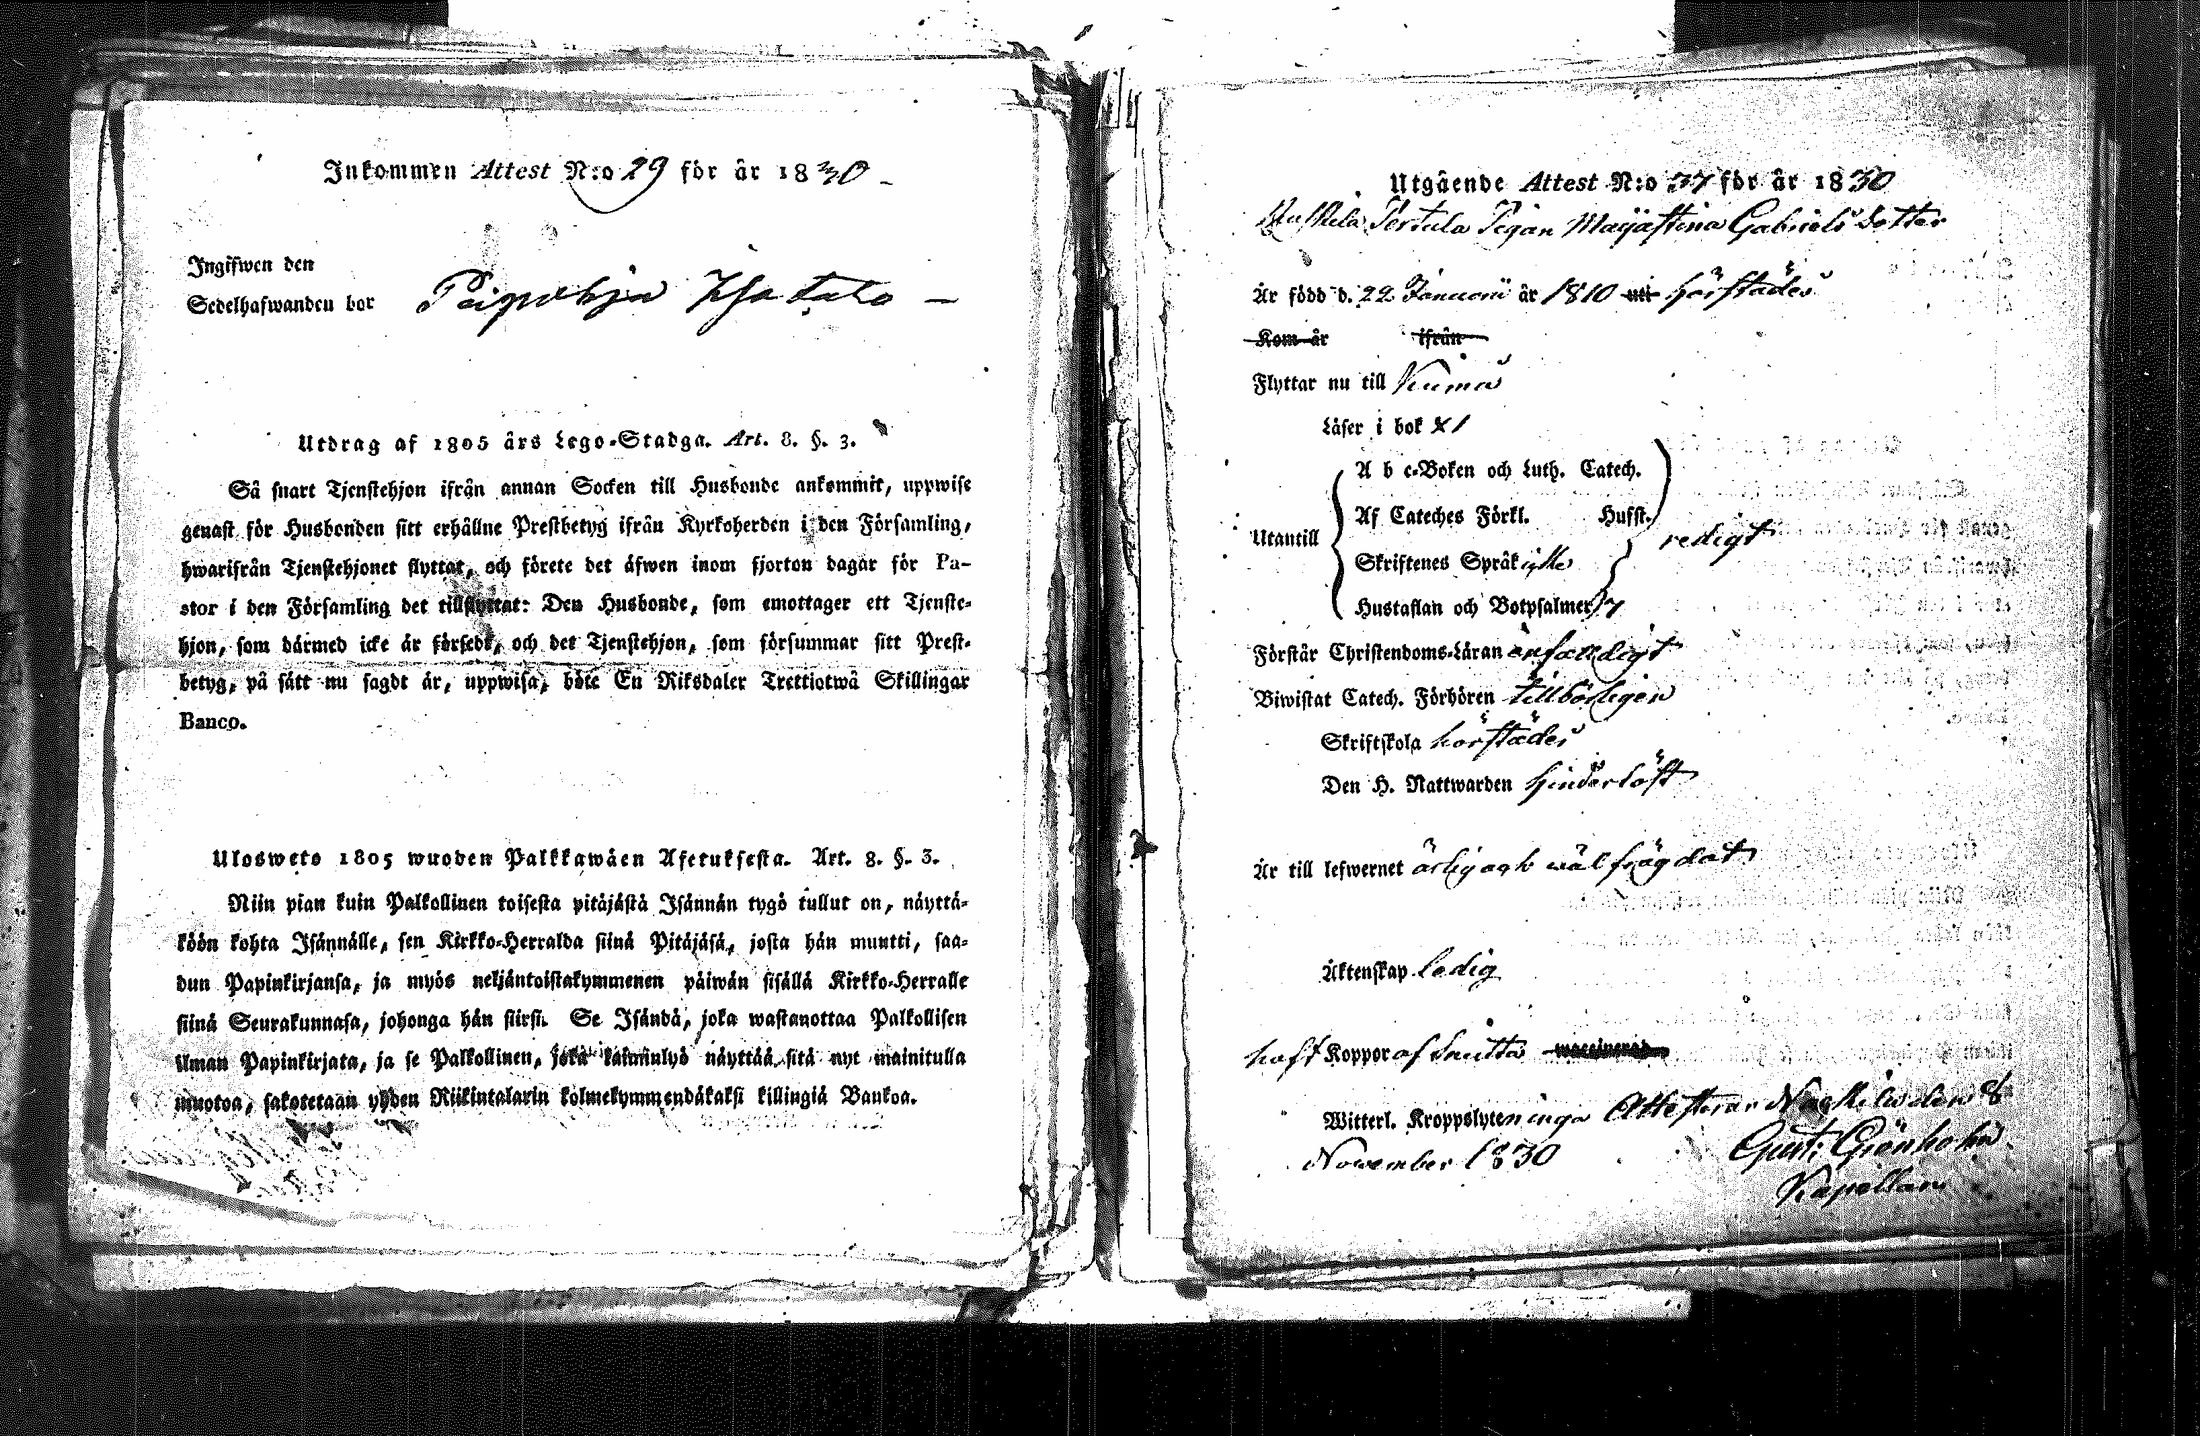 Inkommen Attest N:o 29 för år 1830 -
Ingifwen den
Sedelhafwanden bor Paipohja Isotalo -
Utdrag af 1805 års Lego-Stadga. Art. 8. §. 3.
Så snart Tjenstehjon ifrån annan Socken till Husbonde ankommit, uppwise
genast för Husbonden sitt erhållne Prestbetyg ifrån Kyrkoherden i den Församling,
hwarifrån Tjenstehjonet flyttat, och förete det äfwen inom fjorton dagar för Pa-
stor i den Församling det tillflyttat: Den Husbonde, som emottager ett Tjenste-
hjon, som därmed icke är försedt, och det Tjenstehjon, som försummar sitt Prest-
betyg, på sätt nu sagdt är, uppwisa, böte En Riksdaler Trettiotwå Skillingar
Banco.
Ulosweto 1805 wuoden Palkkawäen Asetuksesta. Art. 8. §. 3.
Niin pian kuin Palkollinen toisesta pitäjästä Isännän tygö tullut on, näyttä-
köön kohta Isännälle, sen Kirkko-Herralda siinä Pitäjäsä, josta hän muutti, saa-
dun Papinkirjansa, ja myös neljäntoistakymmenen päiwän sisällä Kirkko-Herralle
siinä Seurakunnasa, johonga hän siirsi. Se Isändä, joka wastanottaa Palkollisen
ilman Papinkirjata, ja se Palkollinen, joka laiminlyö näyttää sitä nyt mainitulla
muotoa, sakotetaan yhden Riikintalarin kolmekymmendäkaksi killingiä Bankoa.
Utgående Attest N:o 37 för år 1830
Pertula Pigan Maijastina Gabriels dotter
Är född d. 22 Januarii år 1810 uti härstädes
Kom år ifrån
Flyttar nu till Kumo
Läser i bok x1
A b c-Boken och Luth. Catech.
Af Cateches Förkl. Husst.
Utantill redigt
Skriftenes Språk icke
Hustaflan och Botpsalmer 7
Förstår Christendoms-Läran enfaldigt
Biwistat Catech. Förhören tillbörligen
Skriftskola härstädes
Den H. Nattwarden hinderlöst
Är till lefwernet ärlig och wälfrägdat
Äktenskap ledig
haft Koppor af smitta waccinerad
Witterl. Kroppslyten inga Attesterar Nackila den 8
November 1830 Gust: Grönholm
Kapellan